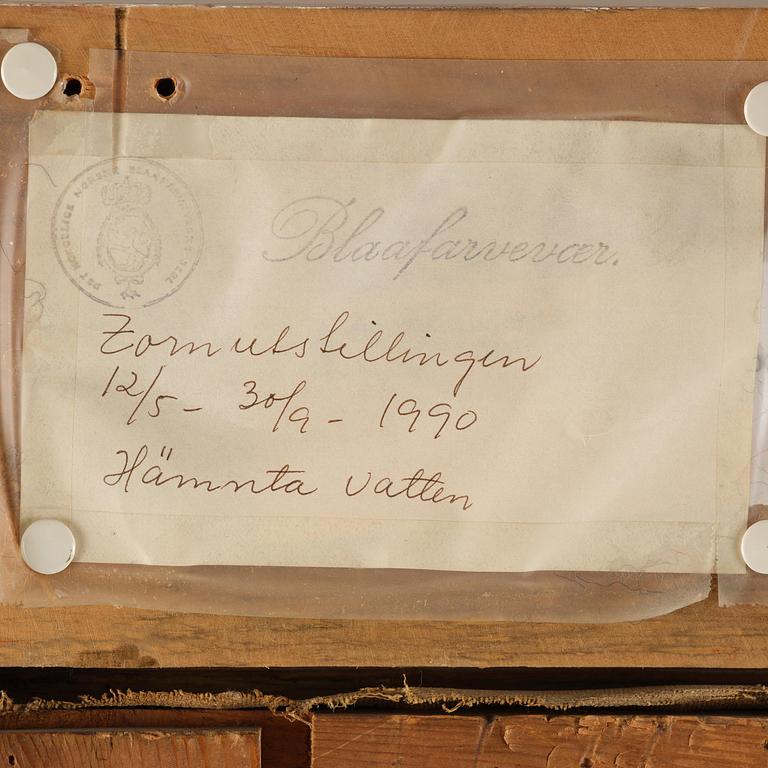 DET KONGELIGE NORSKE BLAAFARVEVÆRKS SEGL
Blaafarveværk.
Zornutstillingen
12/5 - 30/9 - 1990
Hämnta vatten